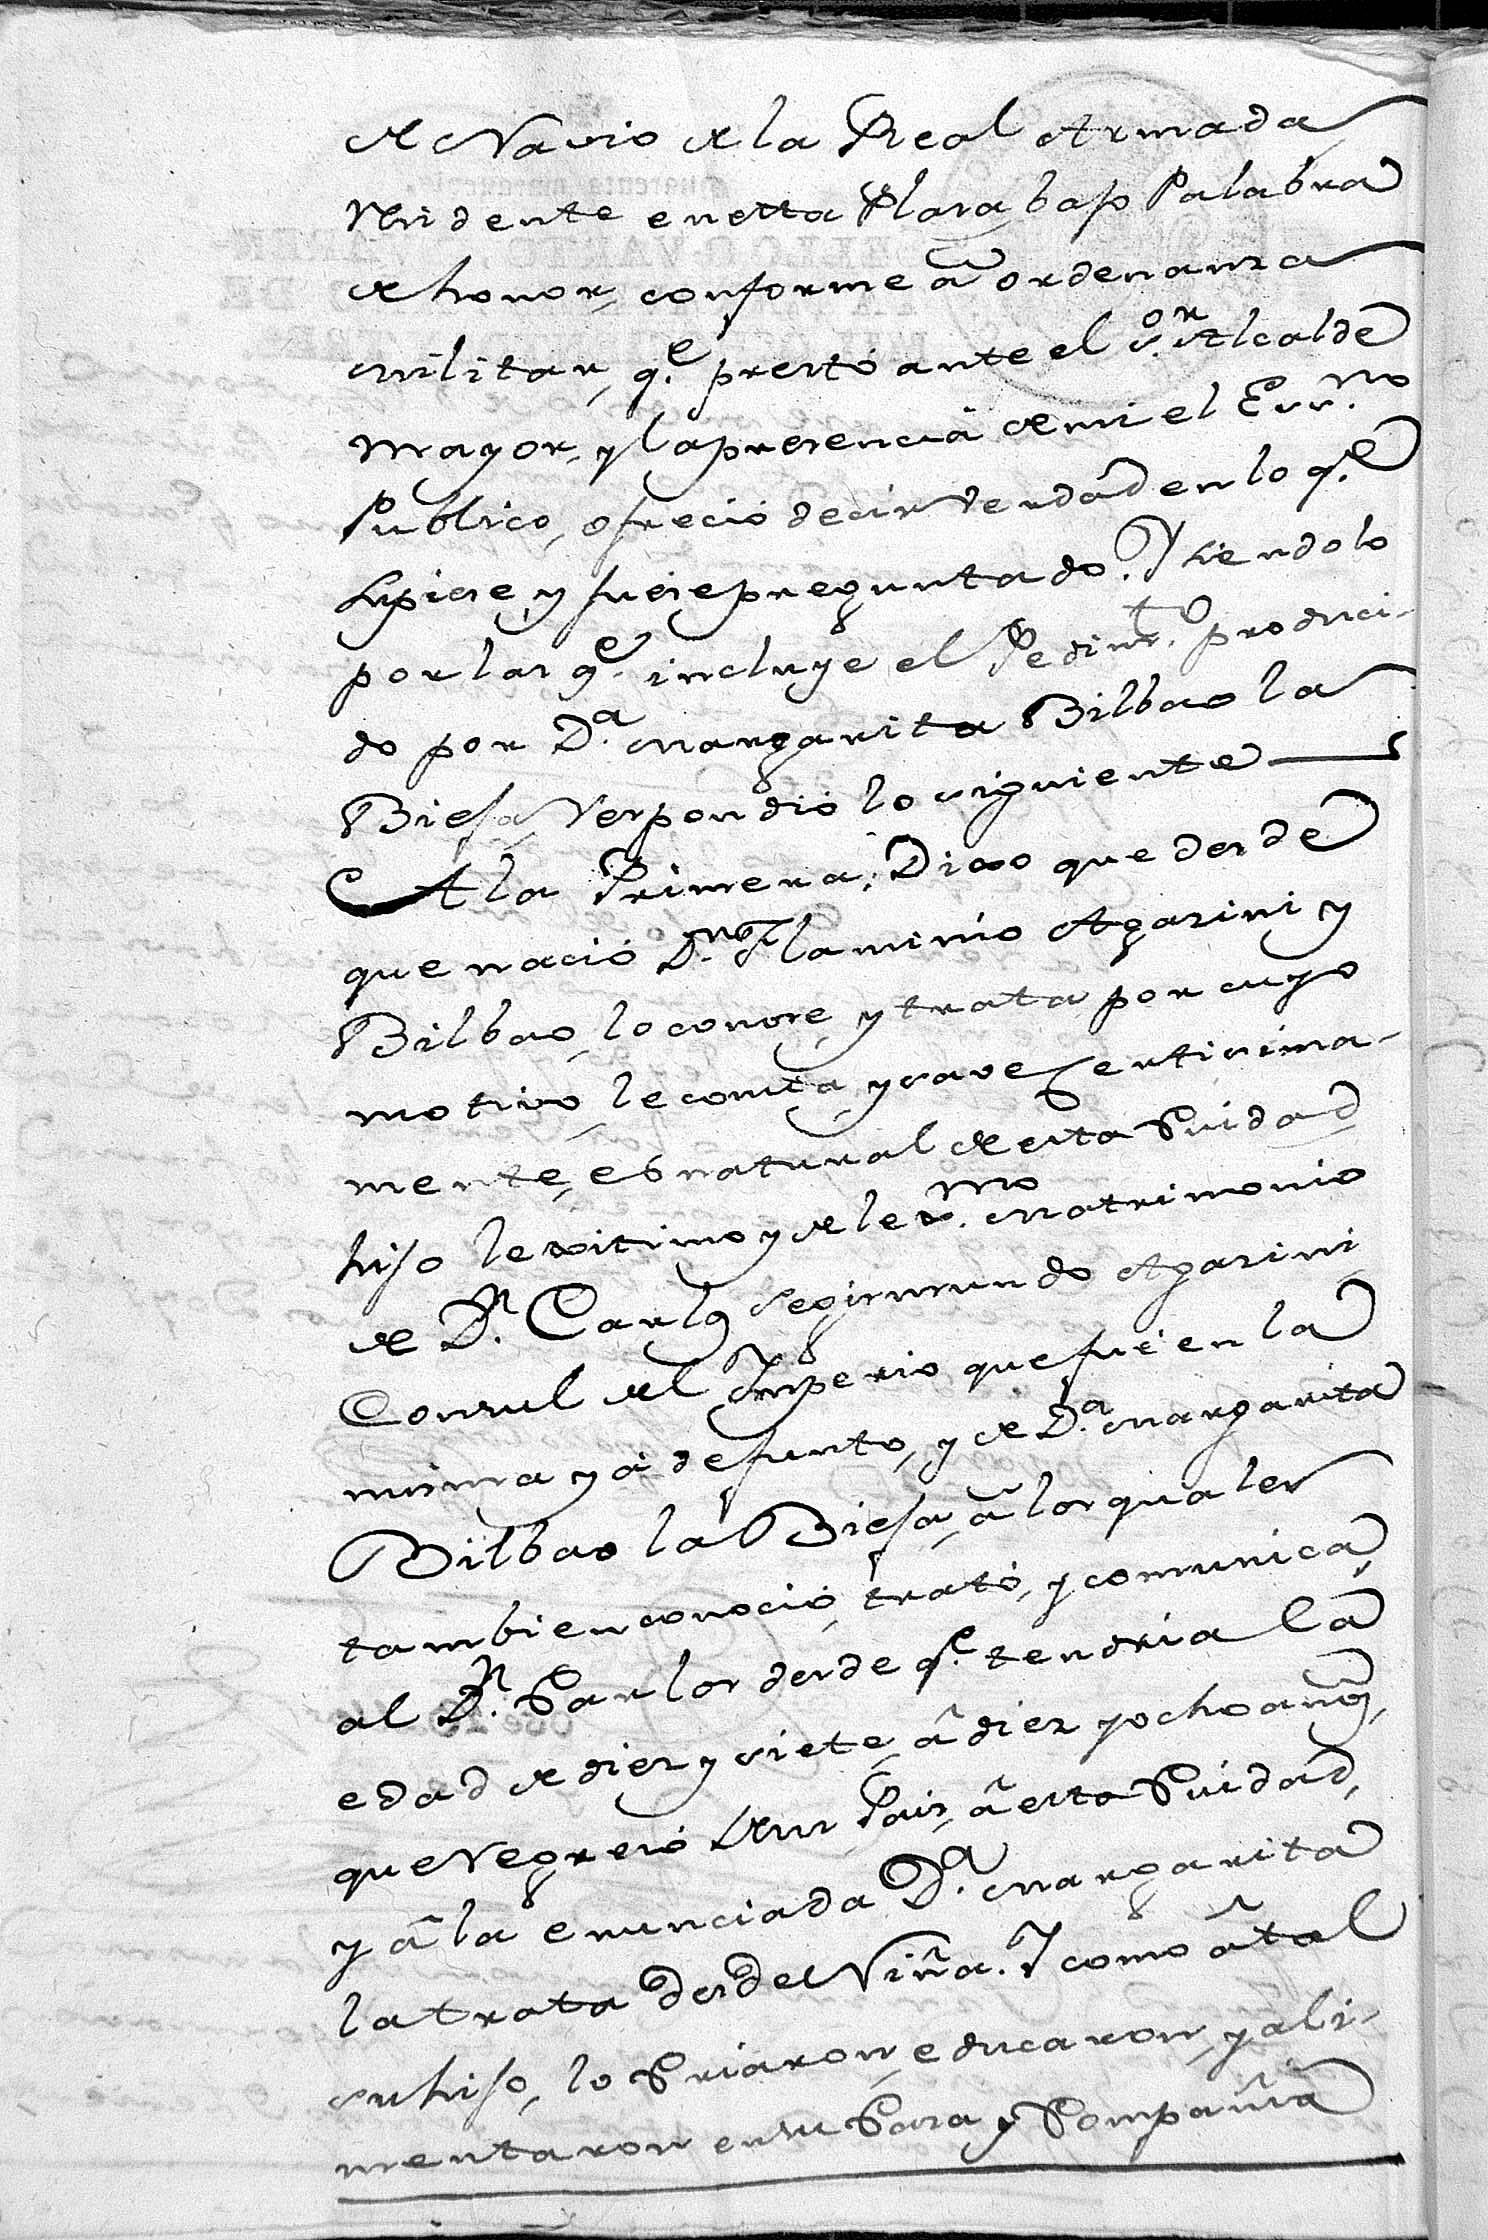 de Navio de la Real Armada
Residente en esta Plaza bajo Palabra
de honor, conforme â ordenanza
militar, q.e prestó ante el S.or Alcalde
mayor, y la presencia de mi el Ess.no
Publico, ofreció decir verdad en lo q.e
supiese, y fuese preguntado. Y siendolo
por las q.e incluye el Pedim.to produci-
do por D.a Margarita Bilbao la
Bieja, respondió lo siguiente
A la Primera, Dixo que desde
que nació D.n Flaminio Agazini y
Bilbao, lo conose, y trata por cuyo
motivo, le consta, y save sertisima-
mente, es natural de esta Ciudad
hijo lexitimo y de lex.mo Matrimonio
de D.n Carlos Segismundo Agazini
Consul del Imperio que fué en la
misma ya defunto, y de D.a Margarita
Bilbao la Bieja, â los quales
tambien conoció, trató, y comunica,
al D.n Carlos desde q.e tendria la
edad de diez y siete, â diez y ocho años,
que regresó de su Pais, â esta Ciudad,
y â la enunciada D.a Margarita
la trata desde Niña. Y como â tal
su hijo, lo Criaron, educaron, y ali-
mentaron en su Casa y Compañia